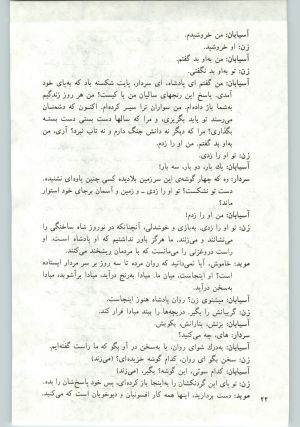 آسیابان: من خروشیدم.
زن: او خروشید.
آسیابان: من به‌او بد گفتم.
زن: تو به‌او بد نگفتی.
آسیابان: من گفتم ای پادشاه، ای سردار، پایت شکسته باد که به‌پای خود
آمدی. پاسخ این رنجهای سالیان من با کیست؟ من هر روز زندگیم
به‌شما باژ داده‌ام. من سواران ترا سیر کرده‌ام. اکنون که دشمنان
می‌رسند تو باید بگریزی، و مرا که سالها دست بستی دست بسته
بگذاری؟ مرا که دیگر نه دانش جنگ دارم و نه تاب نبرد؟ آری، من
به‌او بد گفتم. من او را زدم.
زن: تو او را زدی.
آسیابان: یک بار، دو بار، سه بار!
سردار: وه که چهار گوشه‌ی این سرزمین بلادیده کسی چنین یاوه‌ای نشنیده.
دست تو نشکست؟ تو او را زدی ـ و زمین و آسمان برجای خود استوار
ماند؟
آسیابان: من او را زدم!
زن: تو او را زدی. به‌بازی و خوشدلی، آنچنانکه در نوروز شاه ساختگی را
می‌نشانند و می‌زنند. ما هرگز باور نداشتیم که او پادشاه است. او
راست دروغزنی را می‌مانست که با مردمان ریشخند می‌کنند.
موبد: خاموش، آیا نمی‌دانید که روان مرده تا سه روز بر سر مردار ایستاده
است؟ او اینجاست، میان ما. مبادا به‌رنج درآید، مبادا برآشوبد، مبادا
به‌سخن درآید.
آسیابان: میشنوی زن؟ روان پادشاه هنوز اینجاست.
زن: گریبانش را بگیر. دریچه‌ها را ببند مبادا فرار کند.
آسیابان: بزنش، بتارانش، بکوبش.
سردار: های، چه می‌کنید؟
آسیابان: به‌درک شوای روان، یا به‌سخن در آو بگو که ما راست گفته‌ایم.
زن: سخن بگو ای روان، کدام گوشه خزیده‌ای؟ (می‌زند)
آسیابان: کدام سوئی، این گوشه؟ بگیر. (می‌زند)
زن: تو پای این گردنکشان را به‌اینجا باز کرده‌ای، پس خود پاسخ‌شان را بده.
موبد: دست بردارید، اینها همه کار افسونیان و دیوخویان است که می‌کنید.
۲۲